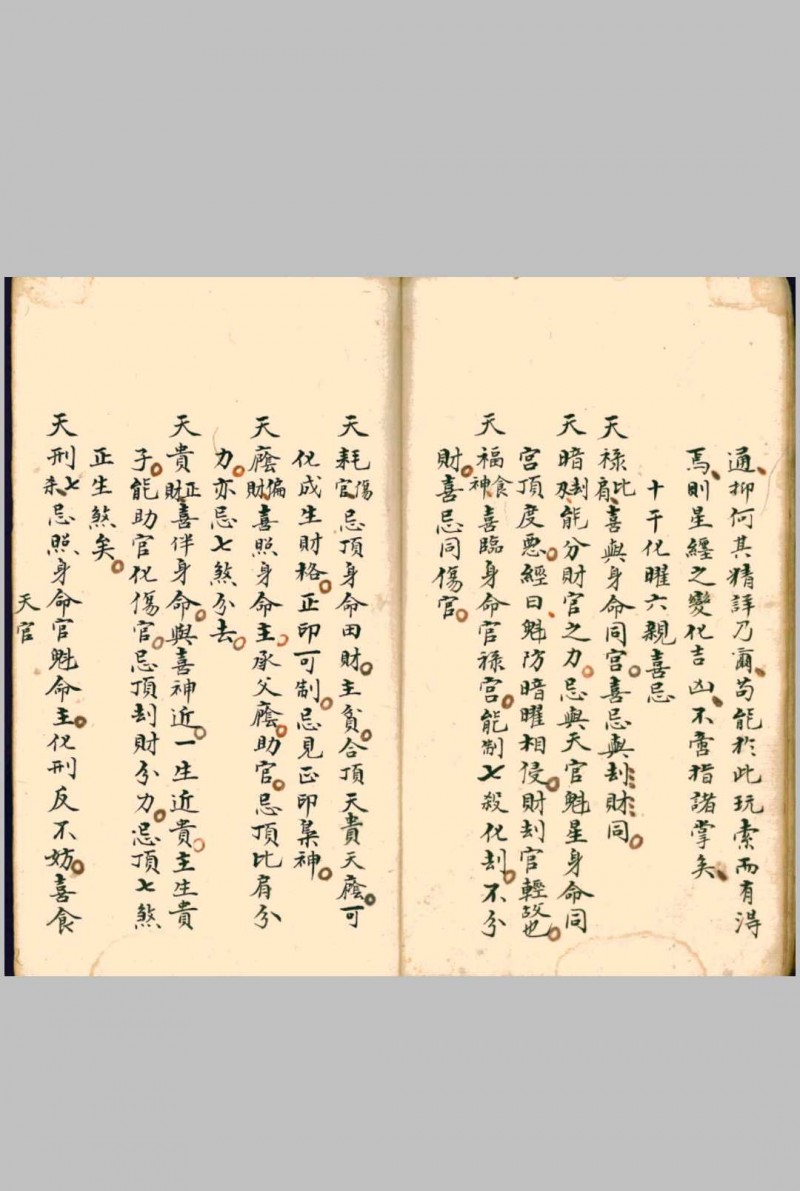 通抑何其精詳乃爾苟能於此玩索而有得
焉則星纏之變化吉凶不啻指諸掌矣
十干化曜六親喜忌
天祿比肩喜與身命同宮喜忌與刦財同
天暗刦刃能分財官之力忌與天官魁星身命同
宮頂度惡經曰魁防暗曜相侵財刦官輕故也
天福食神喜臨身命官祿宮能制七殺化刦不分
財喜忌同傷官
天耗傷官忌頂身命田財主貧合頂天貴天廕可
化成生財格正印可制忌見正印梟神
天廕偏財喜照身命主承父廕助官忌頂比肩分
力亦忌七煞分去
天貴正財喜伴身命與喜神近一生近貴主生貴
子能助官化傷官忌頂刦財分力忌頂七煞
正生煞矣
天刑七煞忌照身命官魁命主化刑反不妨喜食
天官